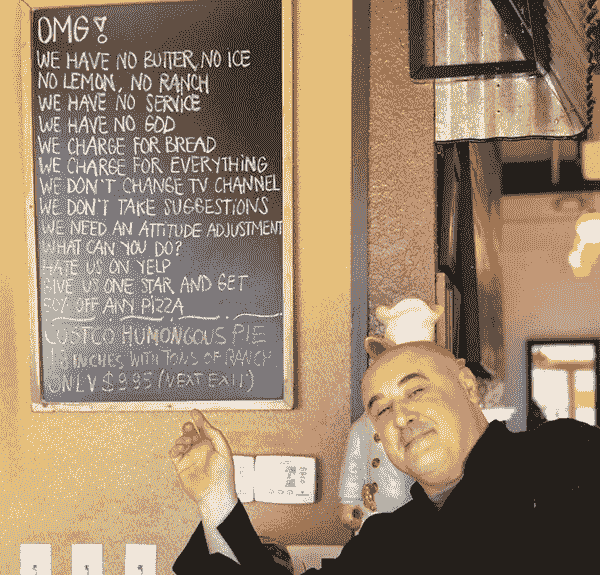 OMG!
WE HAVE NO BUTTER, NO ICE
NO LEMON, NO RANCH
WE HAVE NO SERVICE
WE HAVE NO GOD
WE CHARGE FOR BREAD
WE CHARGE FOR EVERYTHING
WE DON'T CHANGE TV CHANNEL
WE DON'T TAKE SUGGESTIONS
WE NEED AN ATTITUDE ADJUSTMENT
WHAT CAN YOU DO?
HATE US ON YELP
GIVE US ONE STAR AND GET
OFF ANY PIZZA
COSTCO HUMONGOUS PIE
18 INCHES WITH TONS OF RANCH
ONLY $9.95 (NEXT EXIT)